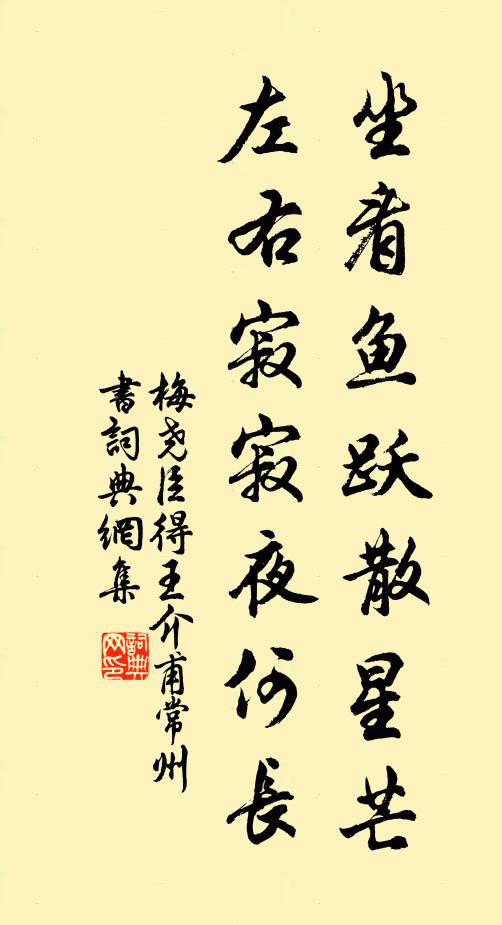 坐看鱼跃散星芒
左右寂寂夜何長
梅尧臣得王介甫常州
書詞典網集
詞典
网印